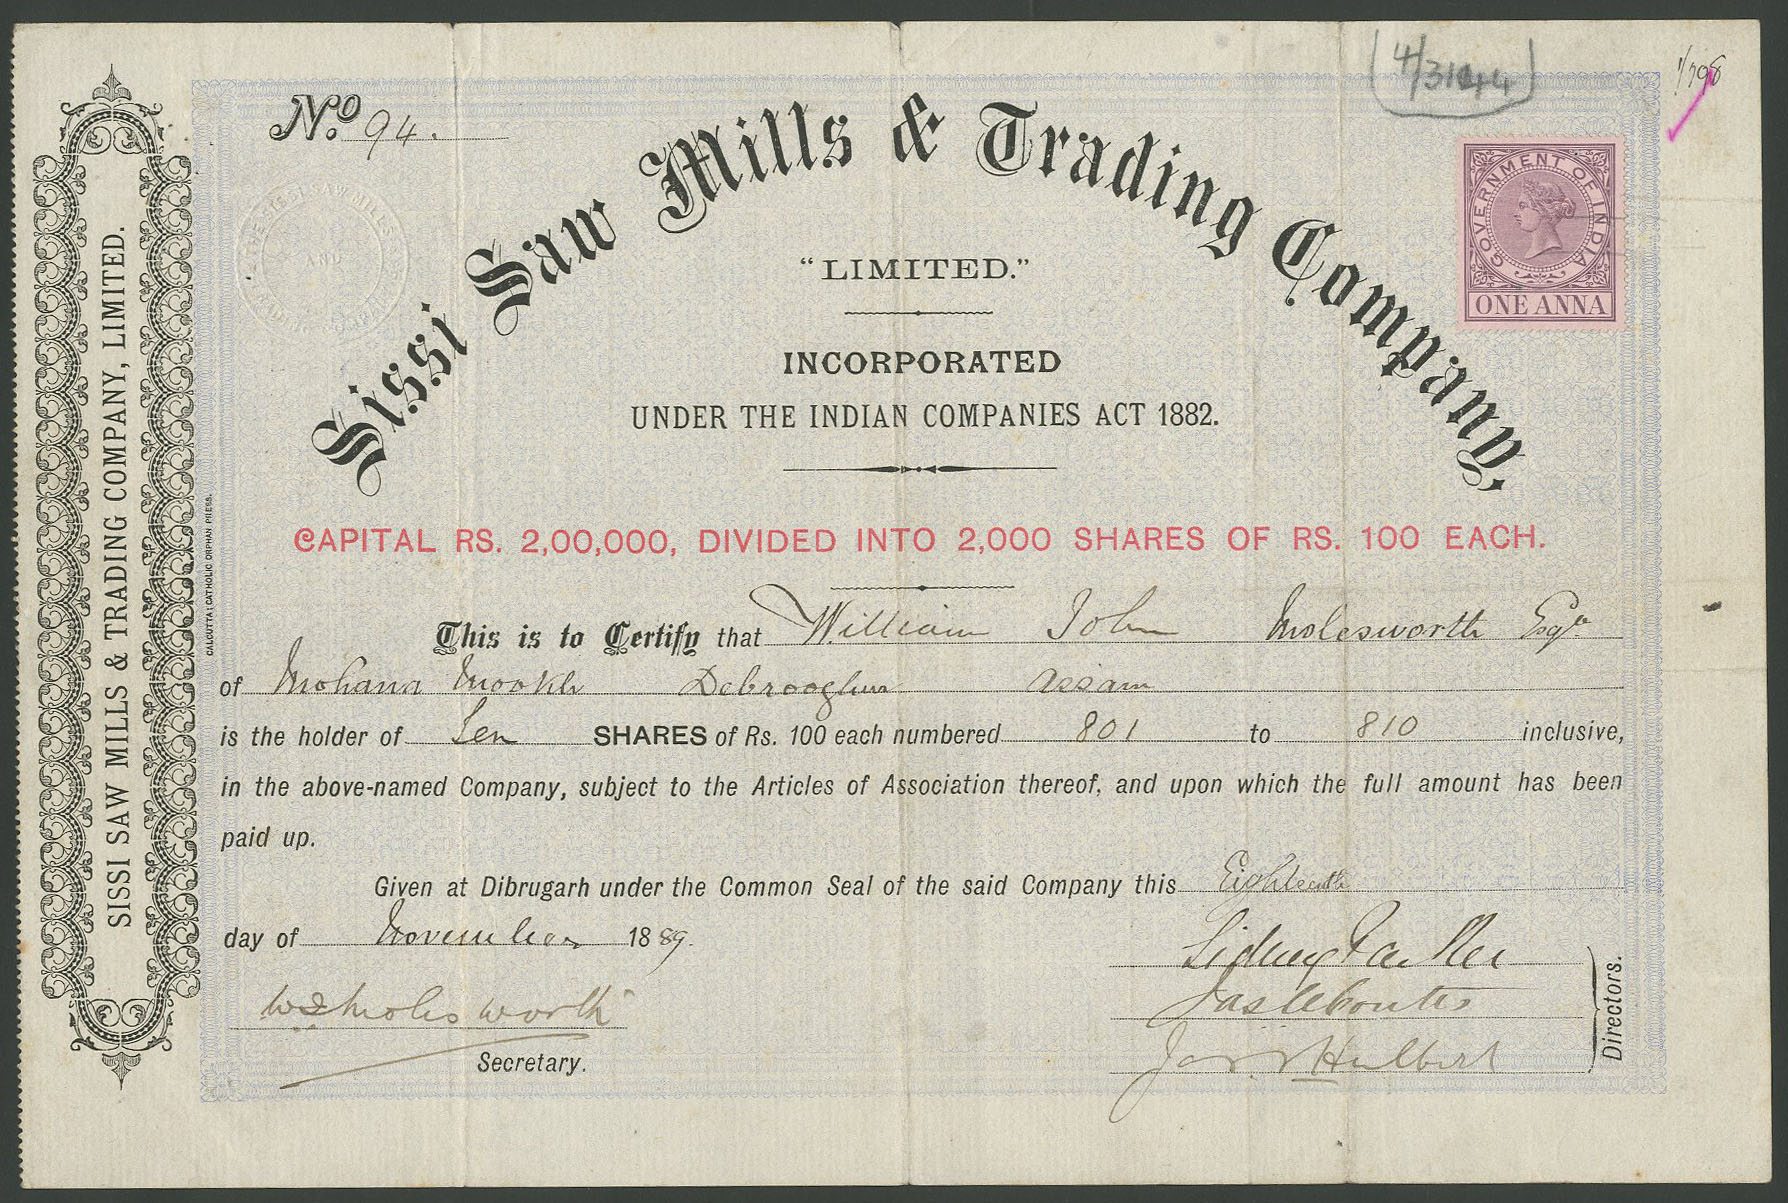 No. 94.
4/3144
1/798
Sissi Saw Mills & Trading Company,
"LIMITED."
GOVERNMENT OF INDIA
ONE ANNA
INCORPORATED
UNDER THE INDIAN COMPANIES ACT 1882.
CAPITAL RS. 2,00,000, DIVIDED INTO 2,000 SHARES OF RS. 100 EACH.
This is to Certify that William John Molesworth Esqre
of Mohana Mookh Debrooghur Assam
is the holder of Ten SHARES of Rs. 100 each numbered 801 to 810 inclusive,
in the above-named Company, subject to the Articles of Association thereof, and upon which the full amount has been
paid up.
Given at Dibrugarh under the Common Seal of the said Company this Eighteenth
day of November 1889.
Sidney
W J Molesworth
Secretary.
Hulbert
Directors.
SISSI SAW MILLS & TRADING COMPANY, LIMITED.
CALCUTTA: CATHOLIC ORPHAN PRESS.
SISSI SAW MILLS
AND